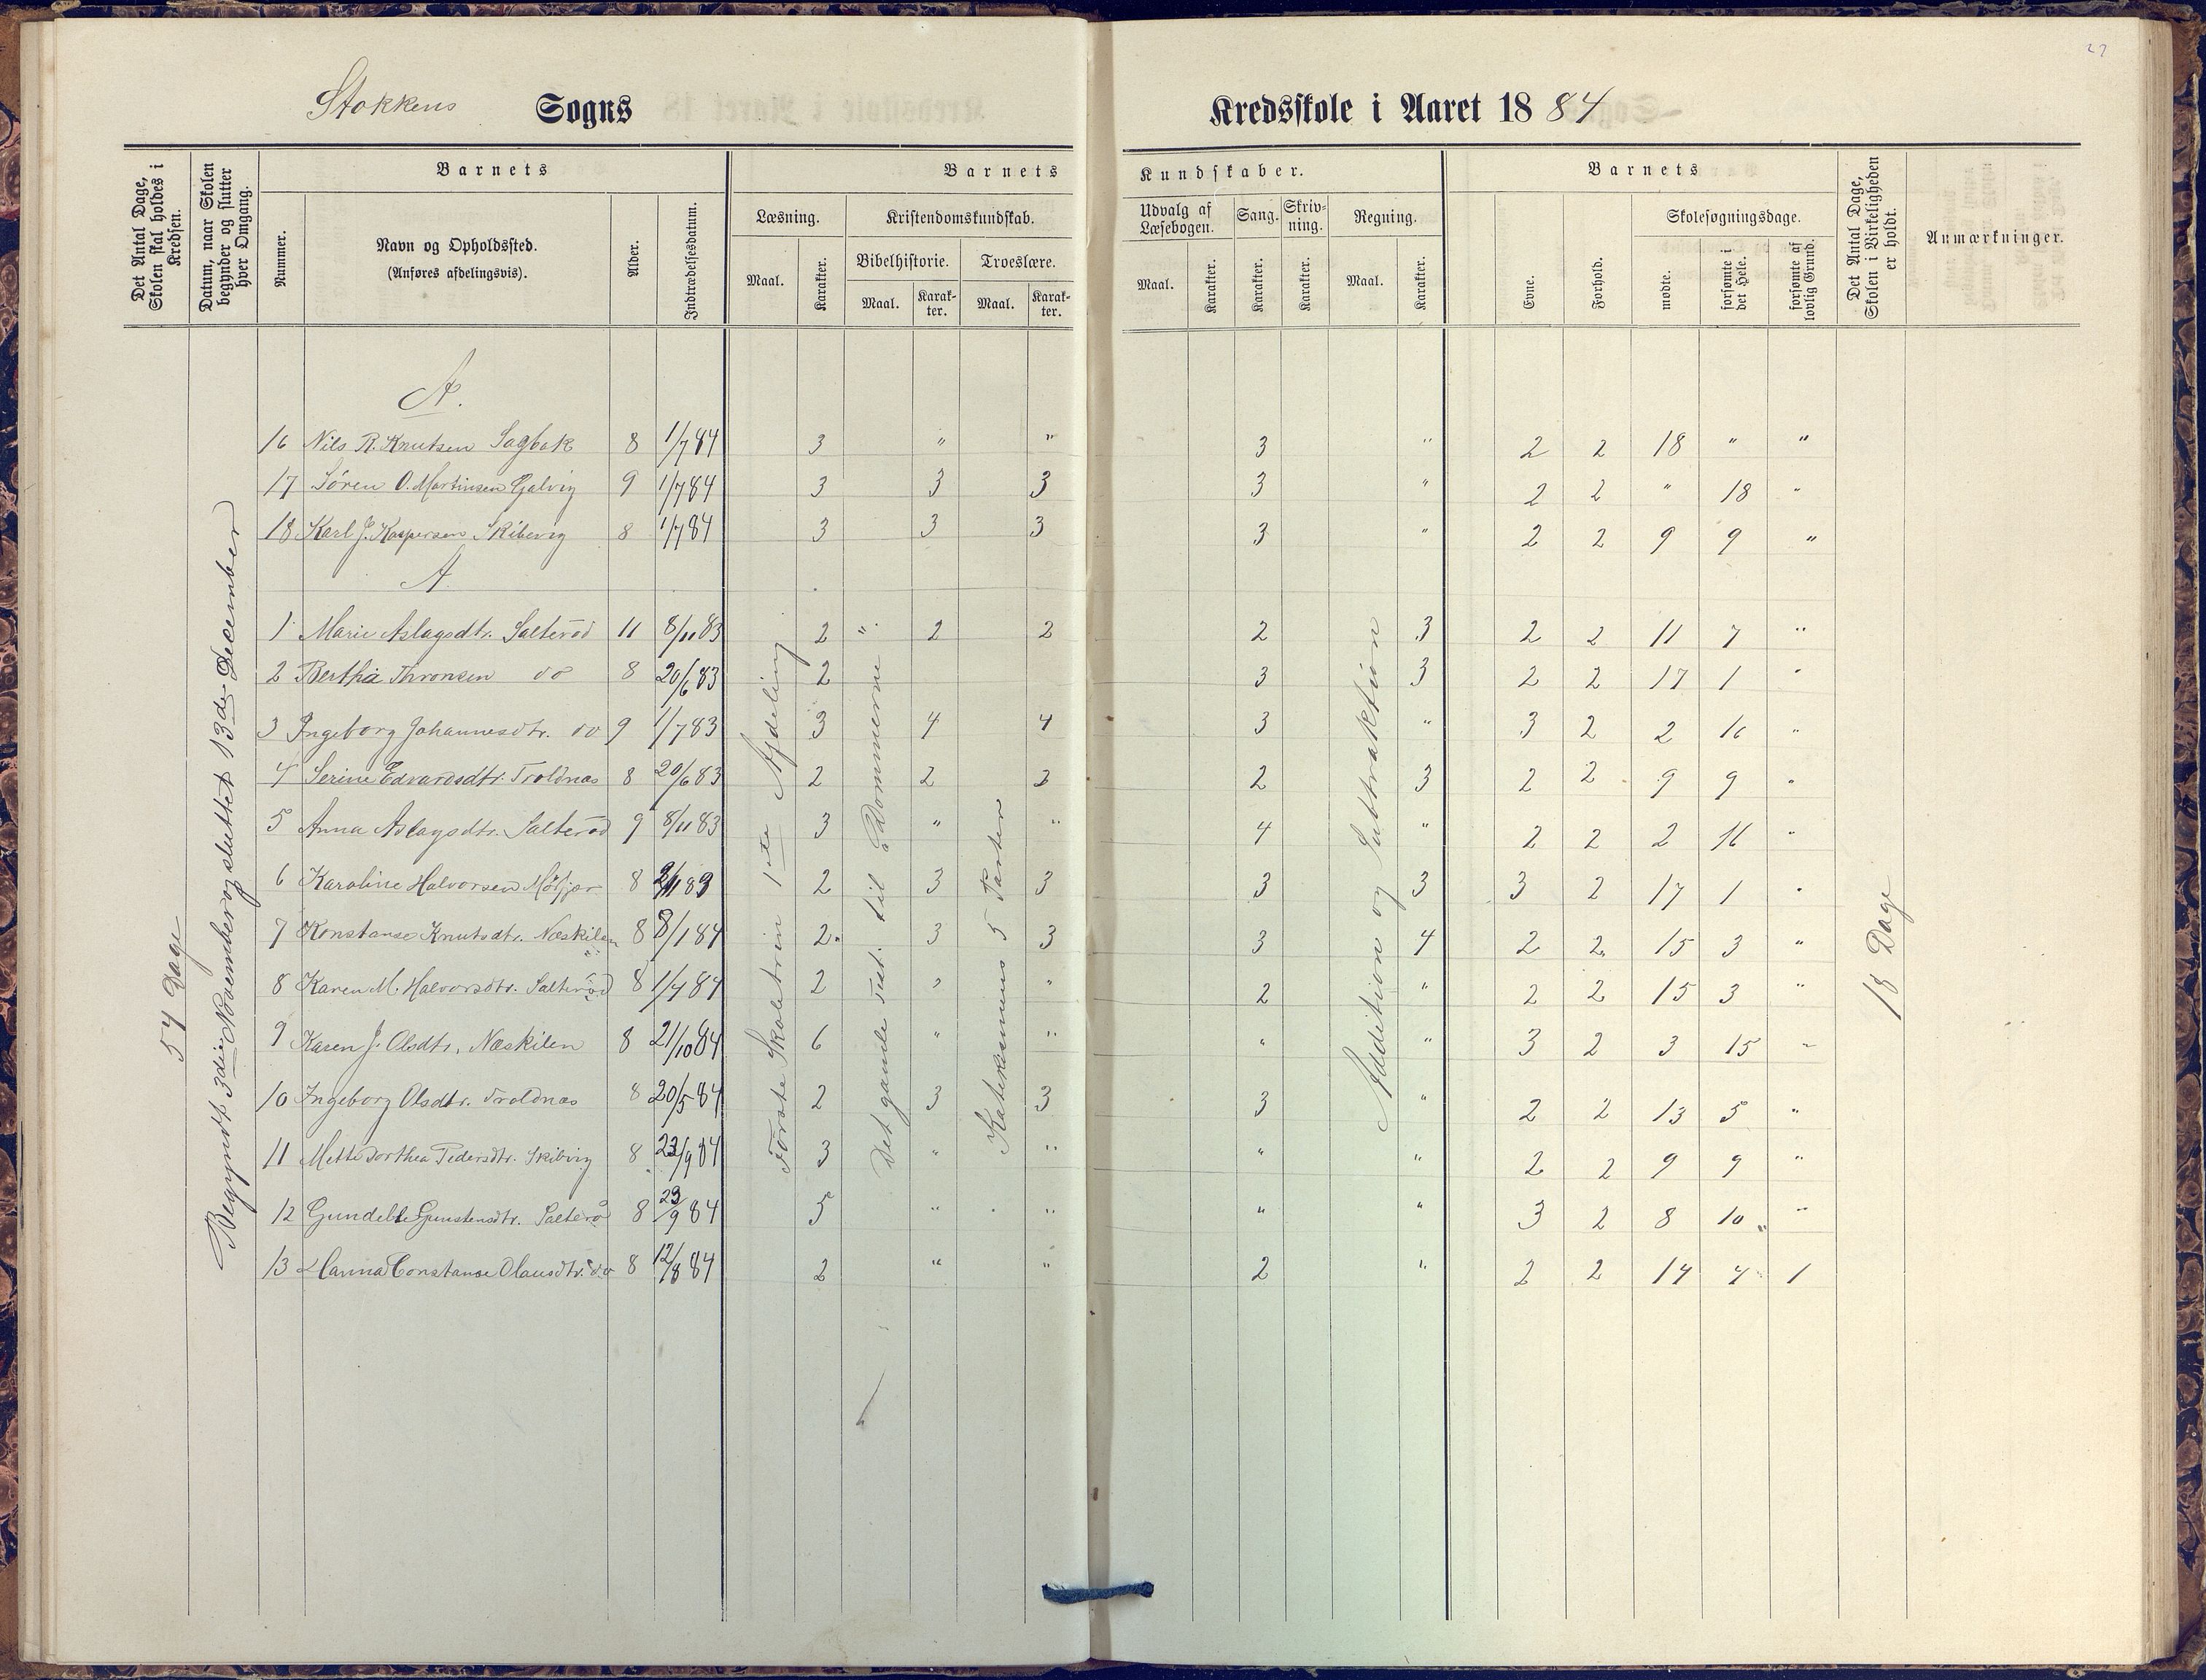 Stokkens Sogns Kredsskole i Aaret 1884
Det Antal Dage, Skolen skal holdes i Kredsen.
Datum, naar Skolen begynder og slutter hver Omgang.
Barnets
Nummer.
Navn og Opholdssted.
(Anføres afdelingsvis).
Alder.
Indtrædelsesdatum.
Barnets Kundskaber.
Læsning.
Maal.
Karakter.
Kristendomskundskab.
Bibelhistorie.
Maal.
Karakter.
Troeslære.
Maal.
Karakter.
Udvalg af Læsebogen.
Maal.
Karakter.
Sang.
Karakter.
Skrivning.
Karakter.
Regning.
Maal.
Karakter.
Barnets
Evne.
Forhold.
Skolesøgningsdage.
mødte.
forsømte i det Hele.
forsømte af lovlig Grund.
Det Antal Dage, Skolen i Virkeligheden er holdt.
Anmærkninger.
54 Dage
Begyndt 3die November og sluttet 13de December
Første Skoletrin 1ste Afdeling
Det gamle Test. til Dommerne
Katekismus 5 Parter
Addition og Subtraktion
18 Dage
A.
16 Nils R. Knutsen Sagbak 8 1/7 84 3 " " 3 " 2 2 18 " "
17 Søren O. Martinsen Galvig 9 1/7 84 3 3 3 3 " 2 2 " 18 "
18 Karl J. Kaspersen Skibevig 8 1/7 84 3 3 3 3 " 2 2 9 9 "
A
1 Marie Aslagsdtr. Salterød 11 8/11 83 2 " 2 2 2 3 2 2 11 7 "
2 Bertha Thronsen do 8 20/6 83 2 3 3 2 2 17 1 "
3 Ingeborg Johannesdtr. do 9 1/7 83 3 4 4 3 " 3 2 2 16 "
4 Serine Edvardsdtr. Troldnæs 8 20/6 83 2 2 3 2 3 2 2 9 9 "
5 Anna Aslagsdtr. Salterød 9 8/11 83 3 " " 4 " 2 2 2 16 "
6 Karoline Halvorsen 8 2/11 83 2 3 3 3 3 3 2 17 1 "
7 Konstanse Knutsdtr. Næskilen 8 8/1 84 2 3 3 3 4 2 2 15 3 "
8 Karen M. Halvorsdtr. Salterød 8 1/7 84 2 " " 2 " 2 2 15 3 "
9 Karen J. Olsdtr. Næskilen 8 21/10 84 6 " " " " 3 2 3 15 "
10 Ingeborg Olsdtr. Troldnæs 8 20/5 84 2 3 3 3 " 2 2 13 5 "
11 Mette Dorthea Pedersdtr. Skibvig 8 23/9 84 3 " " " " 2 2 9 9 "
12 Gundelle Gunstensdtr. Salterø 8 23/9 84 5 " " " " 3 2 8 10 "
13 Hanna Constanse Olausdtr. do 8 12/8 84 2 " " 2 " 2 2 14 4 1